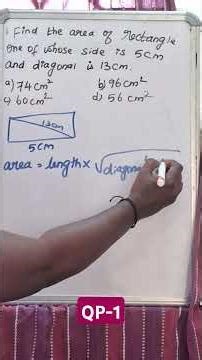 1. Find the area of Rectangle
one of whose side is 5cm
and diagonal is 13cm.
a) 74cm² b) 96cm²
c) 60cm² d) 56 cm²
13cm
5cm
area = length × √diagonal
QP-1